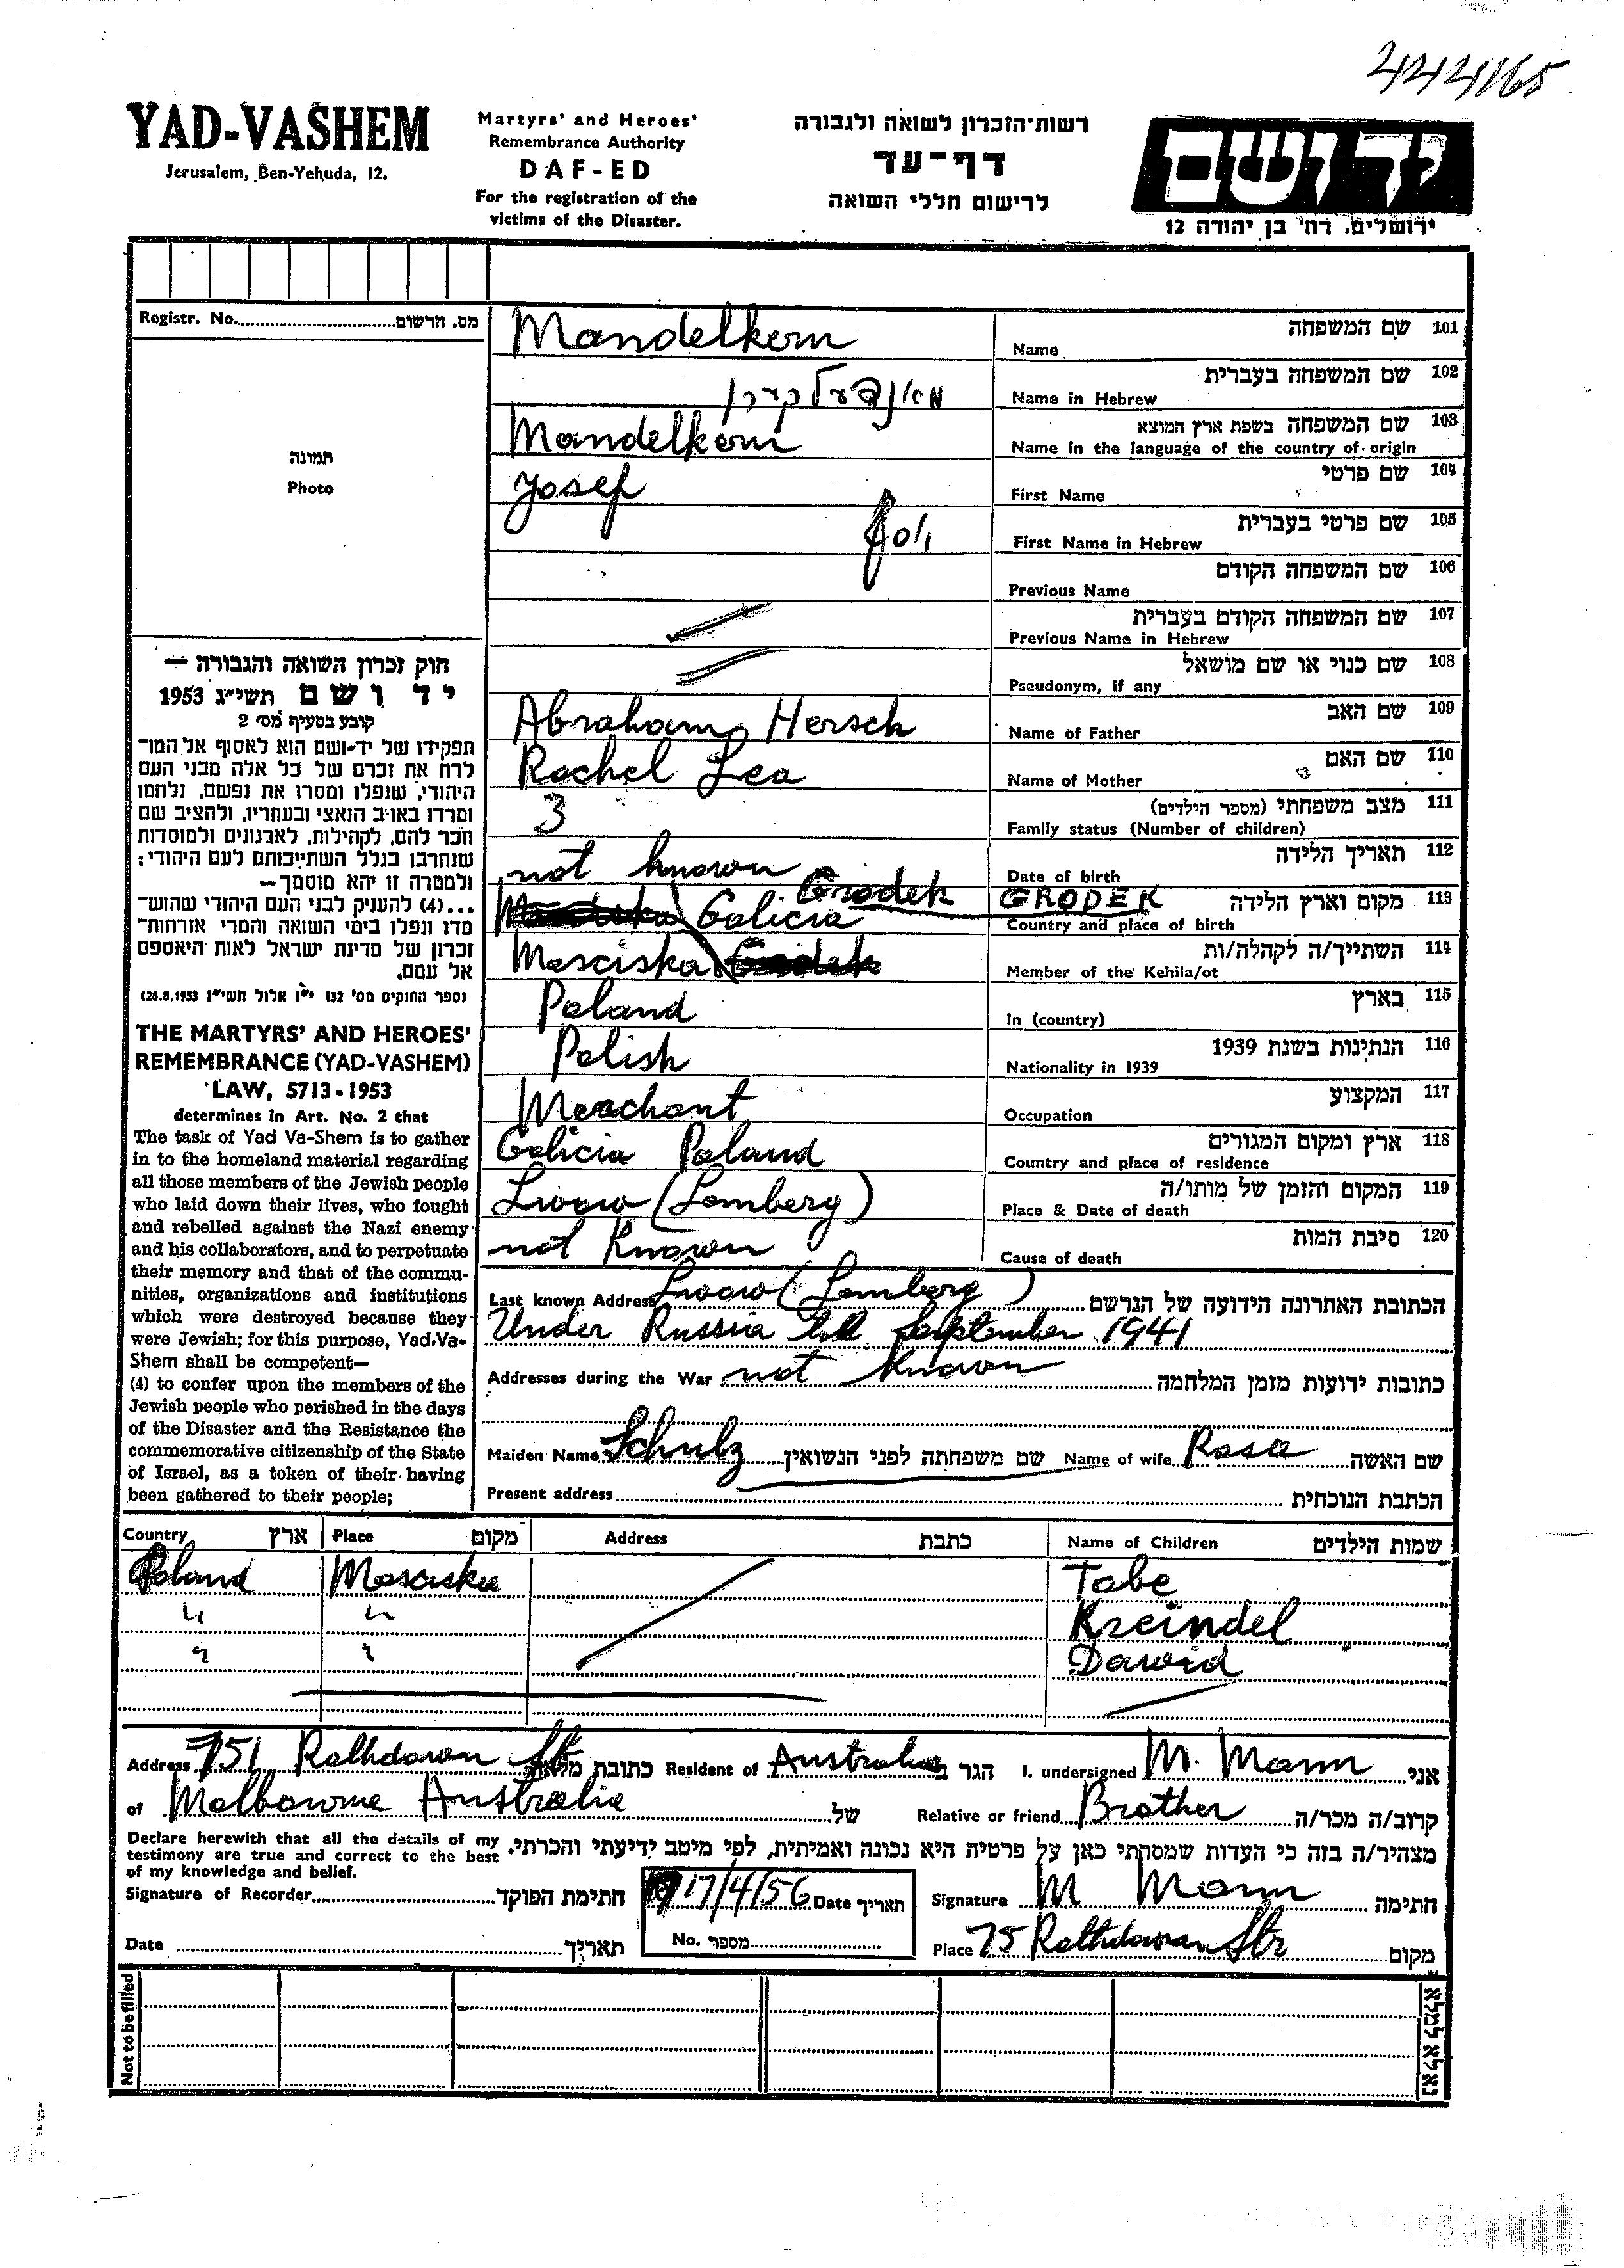 444165
YAD-VASHEM
Jerusalem, Ben-Yehuda, 12.
Martyrs' and Heroes'
Remembrance Authority
DAF-ED
For the registration of the
victims of the Disaster.
רשות־הזכרון לשואה ולגבורה
דף־עד
לרישום חללי השואה
ידושם
ירושלים, רח' בן יהודה 12
Registr. No. מס. הרשום
תמונה
Photo
Mandelkern שם המשפחה 101
Name
מאנדעלקערן שם המשפחה בעברית 102
Name in Hebrew
Mandelkern שם המשפחה בשפת ארץ המוצא 103
Name in the language of the country of origin
Josef שם פרטי 104
First Name
יוסף שם פרטי בעברית 105
First Name in Hebrew
שם המשפחה הקודם 106
Previous Name
שם המשפחה הקודם בעברית 107
Previous Name in Hebrew
שם כנוי או שם מושאל 108
Pseudonym, if any
Abraham Hersch שם האב 109
Name of Father
Rachel Lea שם האם 110
Name of Mother
3 מצב משפחתי (מספר הילדים) 111
Family status (Number of children)
not known תאריך הלידה 112
Date of birth
Galicia Grodek GRODEK מקום וארץ הלידה 113
Country and place of birth
Mosciska השתייך/ה לקהלה/ות 114
Member of the Kehila/ot
Poland בארץ 115
In (country)
Polish הנתינות בשנת 1939 116
Nationality in 1939
Merchant המקצוע 117
Occupation
Galicia Poland ארץ ומקום המגורים 118
Country and place of residence
Lwow (Lemberg) המקום והזמן של מותו/ה 119
Place & Date of death
not Known סיבת המות 120
Cause of death
חוק זכרון השואה והגבורה —
יד ושם תשי"ג 1953
קובע בסעיף מס' 2
תפקידו של יד־ושם הוא לאסוף אל המו־
לדת את זכרם של כל אלה מבני העם
היהודי, שנפלו ומסרו את נפשם, נלחמו
ומרדו באויב הנאצי ובעוזריו, ולהציב שם
וזכר להם, לקהילות, לארגונים ולמוסדות
שנחרבו בגלל השתייכותם לעם היהודי;
ולמטרה זו יהא מוסמך—
...(4) להעניק לבני העם היהודי שהוש־
מדו ונפלו בימי השואה והמרי אזרחות־
זכרון של מדינת ישראל לאות היאספם
אל עמם.
(ספר החוקים מס' 132 י"ז אלול תשי"ג 28.8.1953)
THE MARTYRS' AND HEROES'
REMEMBRANCE (YAD-VASHEM)
LAW, 5713-1953
determines in Art. No. 2 that
The task of Yad Va-Shem is to gather
in to the homeland material regarding
all those members of the Jewish people
who laid down their lives, who fought
and rebelled against the Nazi enemy
and his collaborators, and to perpetuate
their memory and that of the commu-
nities, organizations and institutions
which were destroyed because they
were Jewish; for this purpose, Yad.Va-
Shem shall be competent—
(4) to confer upon the members of the
Jewish people who perished in the days
of the Disaster and the Resistance the
commemorative citizenship of the State
of Israel, as a token of their having
been gathered to their people;
Last known Address Lwow (Lemberg) הכתובת האחרונה הידועה של הנרשם
Under Russia till September 1941
Addresses during the War not known כתובות ידועות מזמן המלחמה
Maiden Name Schulz שם משפחתה לפני הנשואין Name of wife Rosa שם האשה
Present address הכתבת הנוכחית
Country ארץ Place מקום Address כתבת Name of Children שמות הילדים
Poland Mosciska Tabe
" " Kreindel
" " Dawid
Address 751 Rathdown Str כתובת מלאה Resident of Australia הגר ב I. undersigned M. Mann אני
of Melbourne Australia של Relative or friend Brother קרוב/ה מכר/ה
Declare herewith that all the details of my
testimony are true and correct to the best
of my knowledge and belief.
מצהיר/ה בזה כי העדות שמסרתי כאן על פרטיה היא נכונה ואמיתית, לפי מיטב ידיעתי והכרתי.
Signature of Recorder חתימת הפוקד 17/4/56 Date תאריך Signature M Mann חתימה
Date תאריך No. מספר Place 75 Rathdown Str מקום
Not to be filled
נא לא למלא